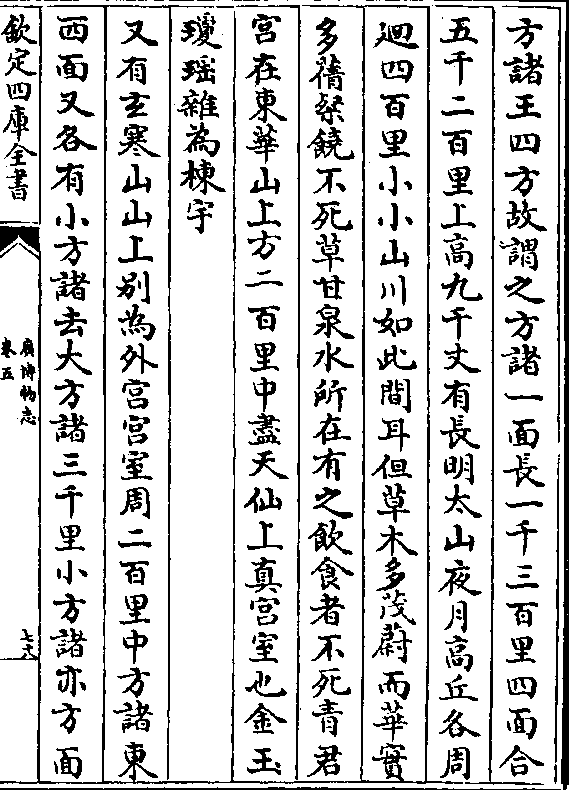 方諸王四方故謂之方諸一面長一千三百里四面合
五千二百里上高九千丈有長明太山夜月高丘各周
廻四百里小小山川如此間耳但草木多茂蔚而華實
多蒨粲饒不死草甘泉水所在有之飲食者不死青君
宮在東華山上方二百里中盡天仙上真宮室也金玉
瓊瑶雜為棟宇
又有玄寒山山上别為外宮宮室周二百里中方諸東
西面又各有小方諸去大方諸三千里小方諸亦方面
欽定四庫全書
廣博物志
卷五